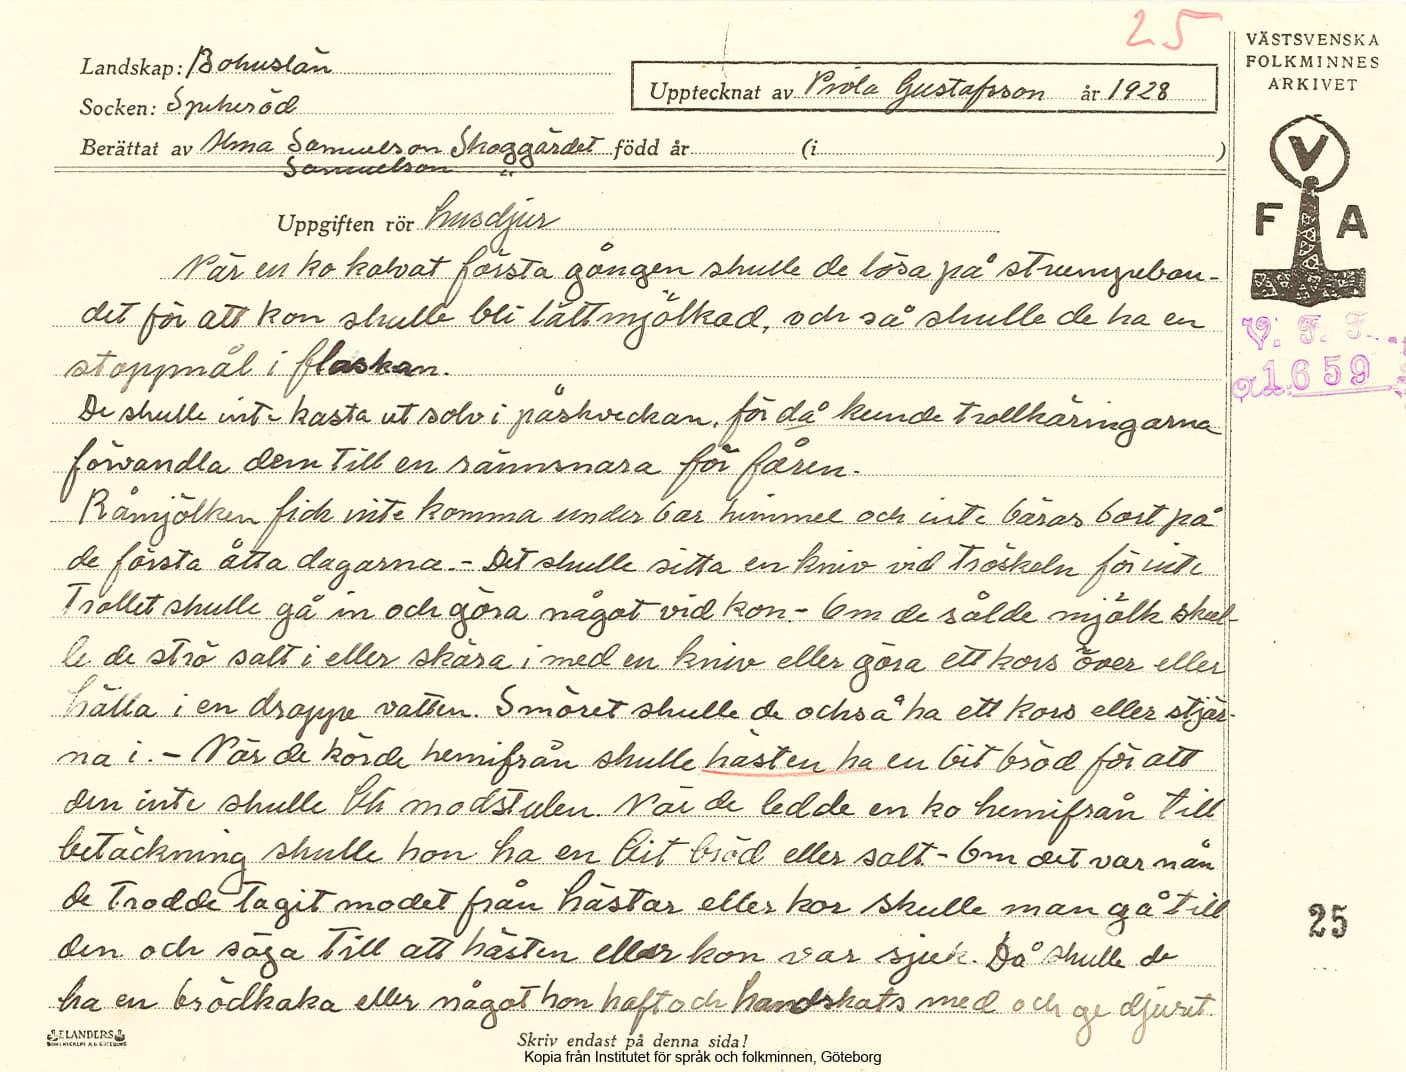 25
VÄSTSVENSKA
FOLKMINNES
ARKIVET
Landskap: Bohuslän
Socken: Spekeröd
Upptecknat av Viola Gustafsson år 1928
Berättat av Alma Samuelson Skoggärdet född år (i )
Samuelson
V
F A
Uppgiften rör husdjur
När en ko kalvat första gången skulle de lösa på strumpeban-
det för att kon skulle bli lättmjölkad, och så skulle de ha en
stoppnål i flaskan.
De skulle inte kasta ut solv i påskveckan, för då kunde trollkäringarna
förvandla dem till en rännsnara för fåren.
Råmjölken fick inte komma under bar himmel och inte bäras bort på
de första åtta dagarna. - Det skulle sitta en kniv vid tröskeln för inte
Trollet skulle gå in och göra något vid kon. - Om de sålde mjölk skul-
le de strö salt i eller skära i med en kniv eller göra ett kors över eller
hälla i en droppe vatten. Smöret skulle de också ha ett kors eller stjär-
na i. - När de körde hemifrån skulle hästen ha en bit bröd för att
den inte skulle bli modstulen. När de ledde en ko hemifrån till
betäckning skulle hon ha en bit bröd eller salt - Om det var nån
de trodde tagit modet från hästar eller kor skulle man gå till
den och säga till att hästen eller kon var sjuk. Då skulle de
ha en brödkaka eller något hon haft och handskats med och ge djuret.
V. F. F.
a1659
25
ELANDERS
Skriv endast på denna sida!
Kopia från Institutet för språk och folkminnen, Göteborg